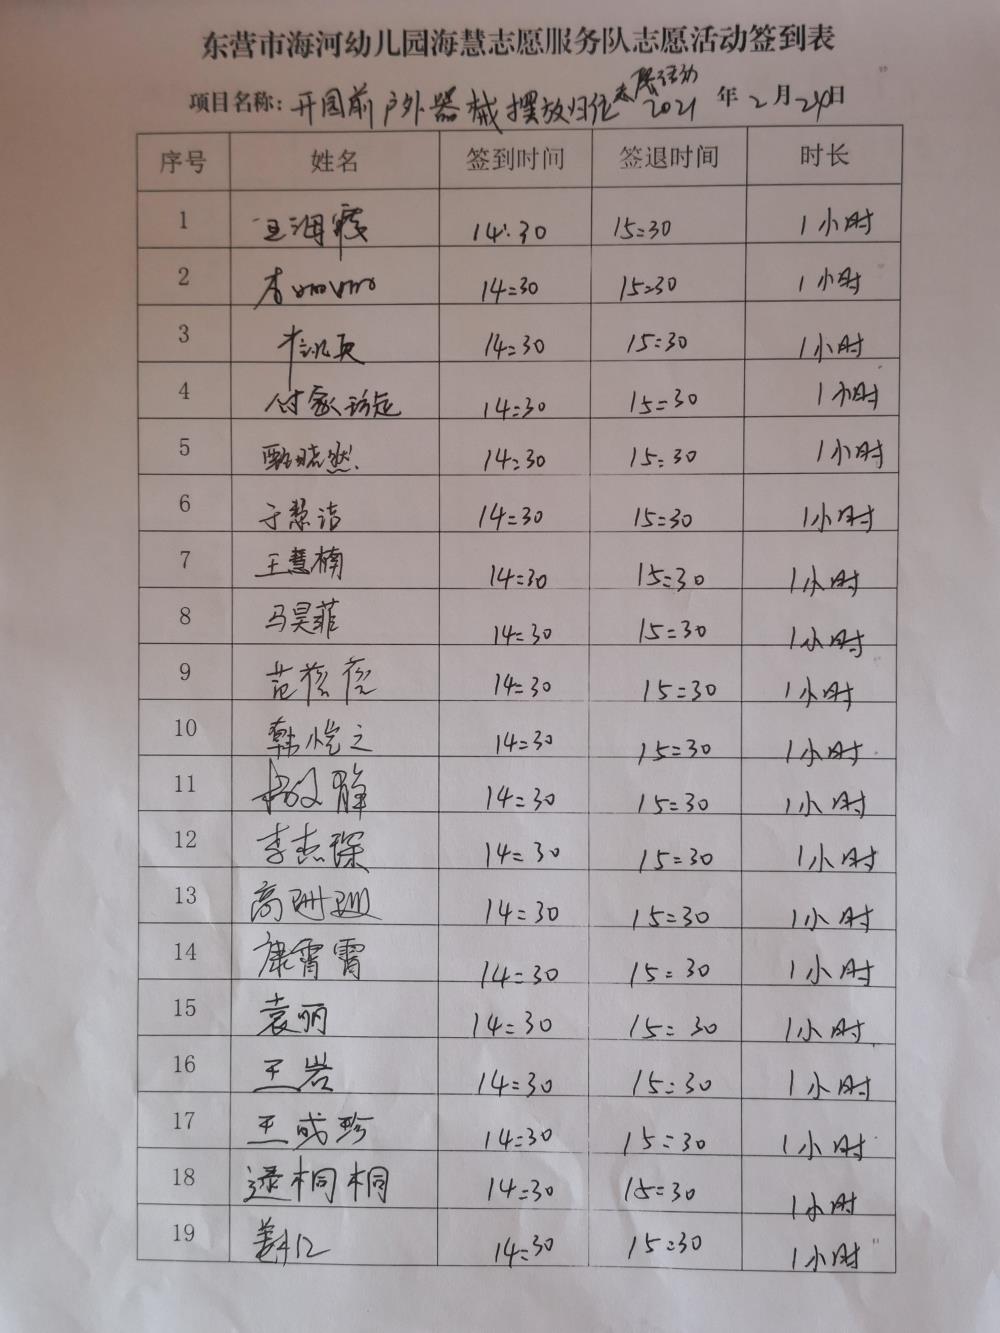 东营市海河幼儿园海慧志愿服务队志愿活动签到表
项目名称：开园前户外器械摆放归位志愿活动 2021 年 2 月 24 日
序号 姓名 签到时间 签退时间 时长
1 王海霞 14:30 15:30 1小时
2 李 14:30 15:30 1小时
3 14:30 15:30 1小时
4 付家 14:30 15:30 1小时
5 甄晓然 14:30 15:30 1小时
6 于慧洁 14:30 15:30 1小时
7 王慧楠 14:30 15:30 1小时
8 马昊菲 14:30 15:30 1小时
9 范 14:30 15:30 1小时
10 韩恺之 14:30 15:30 1小时
11 文静 14:30 15:30 1小时
12 李杰琛 14:30 15:30 1小时
13 高珊珊 14:30 15:30 1小时
14 康霄霄 14:30 15:30 1小时
15 袁丽 14:30 15:30 1小时
16 王岩 14:30 15:30 1小时
17 王成珍 14:30 15:30 1小时
18 逯桐桐 14:30 15:30 1小时
19 14:30 15:30 1小时